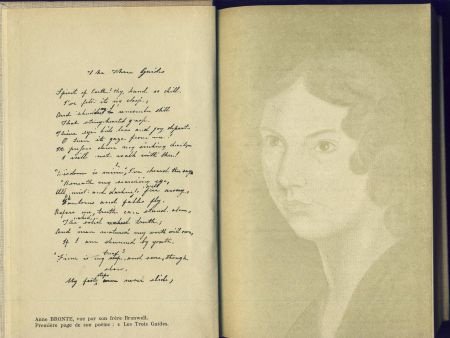 The Three Guides
Spirit of Earth! thy hand is chill.
I've felt its icy clasp;
And shuddering I remember still
That stony-hearted grasp.
Thine eye bids love and joy depart.
O turn its gaze from me!
It presses down my sinking heart;
I will not walk with thee!
"Wisdom is mine," I've heard thee say,
"Beneath my searching eye,
All mist and darkness melt away,
Phantoms and fables fly.
Before me, truth can stand alone,
The naked, solid truth,
And man matured my worth will own,
If I am shunned by youth.
"Firm is my tread, and sure, though
slow.
My footsteps never slide,
Anne BRONTE, vue par son frère Branwell.
Première page de son poème : « Les Trois Guides.